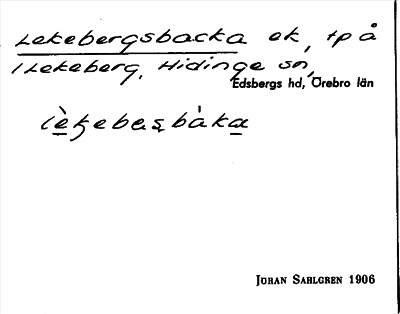 Lekebergsbacka ek, tp å
l Lekeberg, Hidinge sn,
Edsbergs hd, Örebro län
JOHAN SAHLGREN 1906